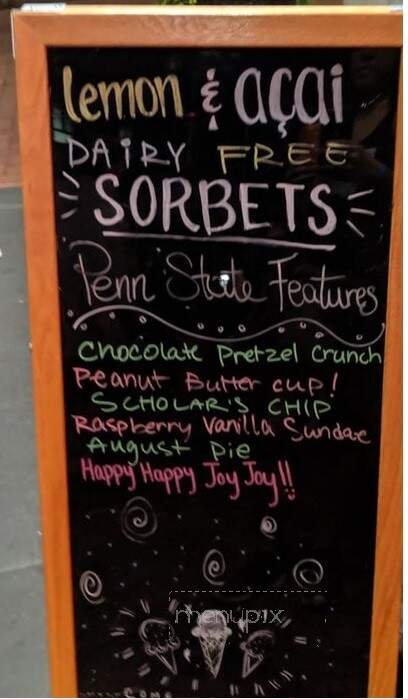 lemon & açai
DAIRY FREE
SORBETS
Penn State Features
Chocolate Pretzel Crunch
Peanut Butter cup!
SCHOLAR'S CHIP
Raspberry Vanilla Sundae
August Pie
Happy Happy Joy Joy!!
menupix